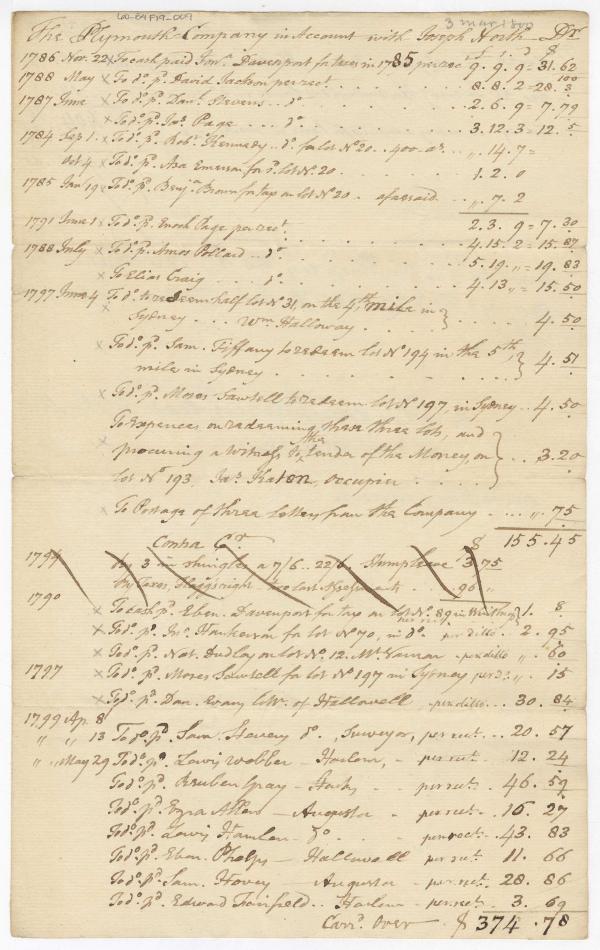 60-E4F19-009
3 mar 1800
The Plymouth Company in Account with Joseph North Dr
1786 Nov. 22 x To cash paid Jonn. Davenport for taxes in 1785 per rect. 9. 9. 9 = 31.62
1788 May x To do. pd. David Jackson per rect. . . . 8. 8. 2 = 28. 3
1787 June x To do. pd. Danl. Stevens .. do. . . . 2. 6. 9 = 7.79
x To do. pd. Jas. Page ... do. . . . 3. 12. 3 = 12. 5
1784 Sep 1. x To do. pd. Robt. Kennedy .. do. for lot No 20 .. 400 . ,, 14. 7 =
Oct 4. x To do. pd. Asa Emerson for do. lot No 20 . . . 1. 2. 0
1785 Jany 19 x To do. pd. Benja. Brown for tax on lot No 20 . . aforesaid .. ,, 7. 2
1791 June 1 x To do. pd. Enoch Page per rect. . . . 2. 3. 9 = 7. 30
1788 July x To do. pd. Amos Pollard .. do. . . . 4. 15. 2 = 15. 87
x To Elias Craig . . . do. . . . 5. 19. ,, = 19. 83
1797 June 4 To do. to redeem half lot No 31, on the 4th, mile in 4. 13 ,, = 15. 50
x Sydney ... Wm Halloway . . . } . . . 4. 50
x To do. pd. Sam. Tiffany to redeem lot No 194 in the 5th,
mile in Sydney . . . } 4. 51
x To do. pd. Moses Sawtell to redeem lot No 197, in Sydney .. 4. 50
To Expences on redeeming these three lots, and
x procuring a Witness, to the tender of the Money, on } . . 3. 20
lot No 193. Jas. Katon, occupier . . .
x To Postage of three letters from the Company .... ,, 75
$ 155.45
Contra Cr.
1794 By 3 m shingles a 7/6 .. 22/6 3.75
By Taxes, last Assessments . . 96 ,,
1790
x To cash pd. Eben. Davenport for tax on lot No. 89 in Winthrop } 1. 8
x To do. pd. Jno. Hankerson for lot No 70, in do. per ditto .. 2. 95
x To do. pd. Nat. Dudley on lot No. 12. Mt. Varnon . per ditto ,, 60
1797 x To do. pd. Moses Sawtell for lot No 197 in Sydney per do. ,, 15
x To do. pd. Dan. Evans of Hallowell . per ditto ... 30. 84
1799 Ap. 8
,, ,, 13 To do. pd. Sam. Hovey do., Surveyor, per rect. .. 20. 57
,, May 29 To do. pd. Lewis Webber - Harlem, - per rect. . 12. 24
To do. pd. Reuben Gray - - per rect. . 46. 59
To do. pd. Ezra Allen - Augusta - per rect. . 16. 27
To do. pd. Lewis Hamlen - Do. . . - per rect. - 43. 83
To do. pd. Eben. Phelps - Hallowell per rect. - 11. 66
To do. pd. Sam. Hovey - Augusta - per rect. . 28. 86
To do. pd. Edward Fairfield .. Harlem - per rect. . 3. 69
Carrd. Over $ 374.78